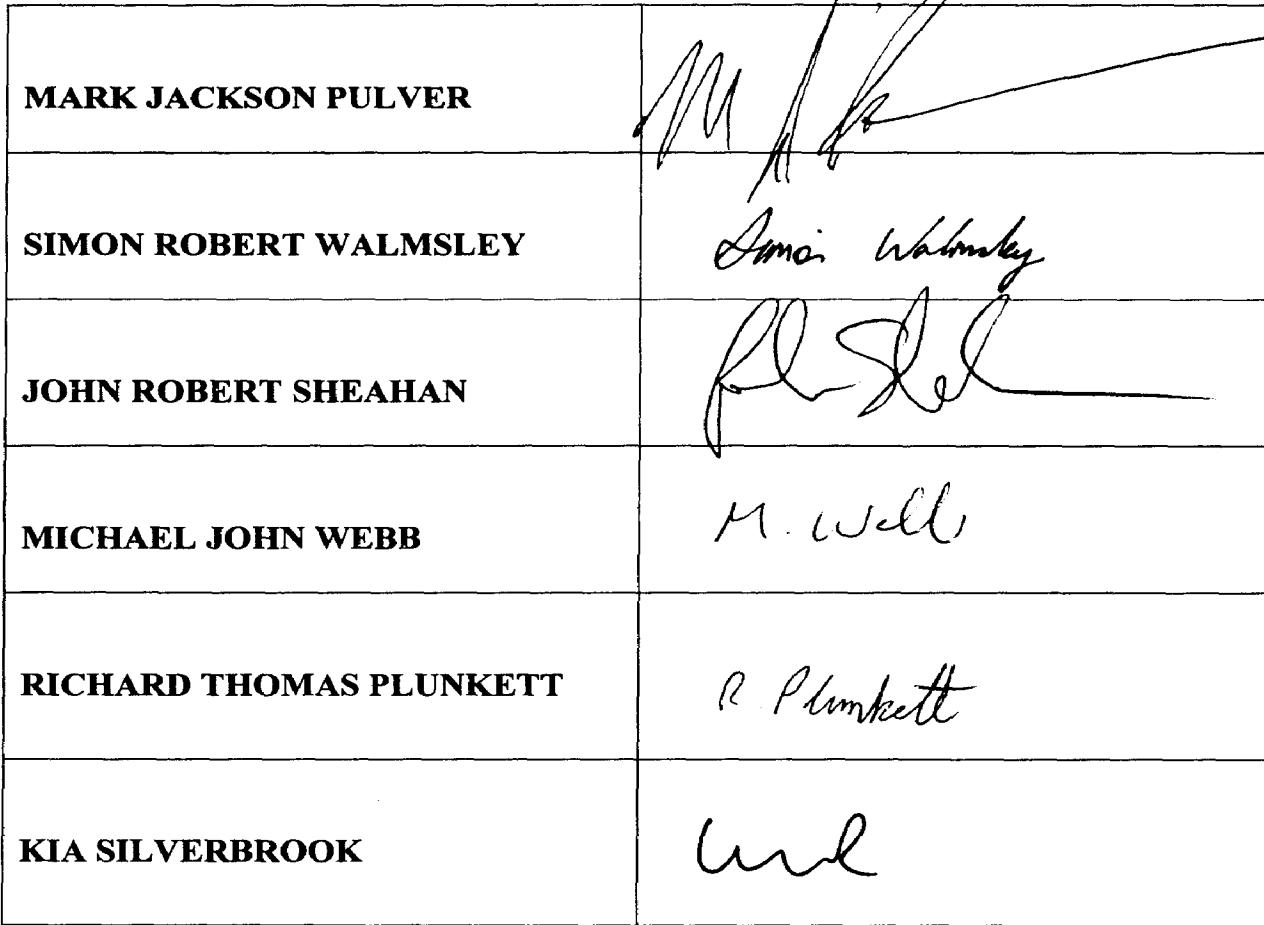 MARK JACKSON PULVER
SIMON ROBERT WALMSLEY
Simon Walmsley
JOHN ROBERT SHEAHAN
MICHAEL JOHN WEBB
M. Webb
RICHARD THOMAS PLUNKETT
R Plunkett
KIA SILVERBROOK